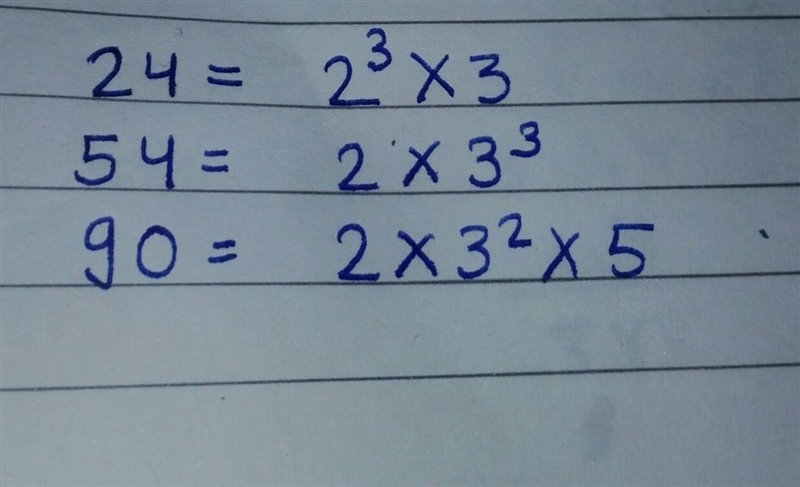 24 = 2³ × 3
54 = 2 × 3³
90 = 2 × 3² × 5